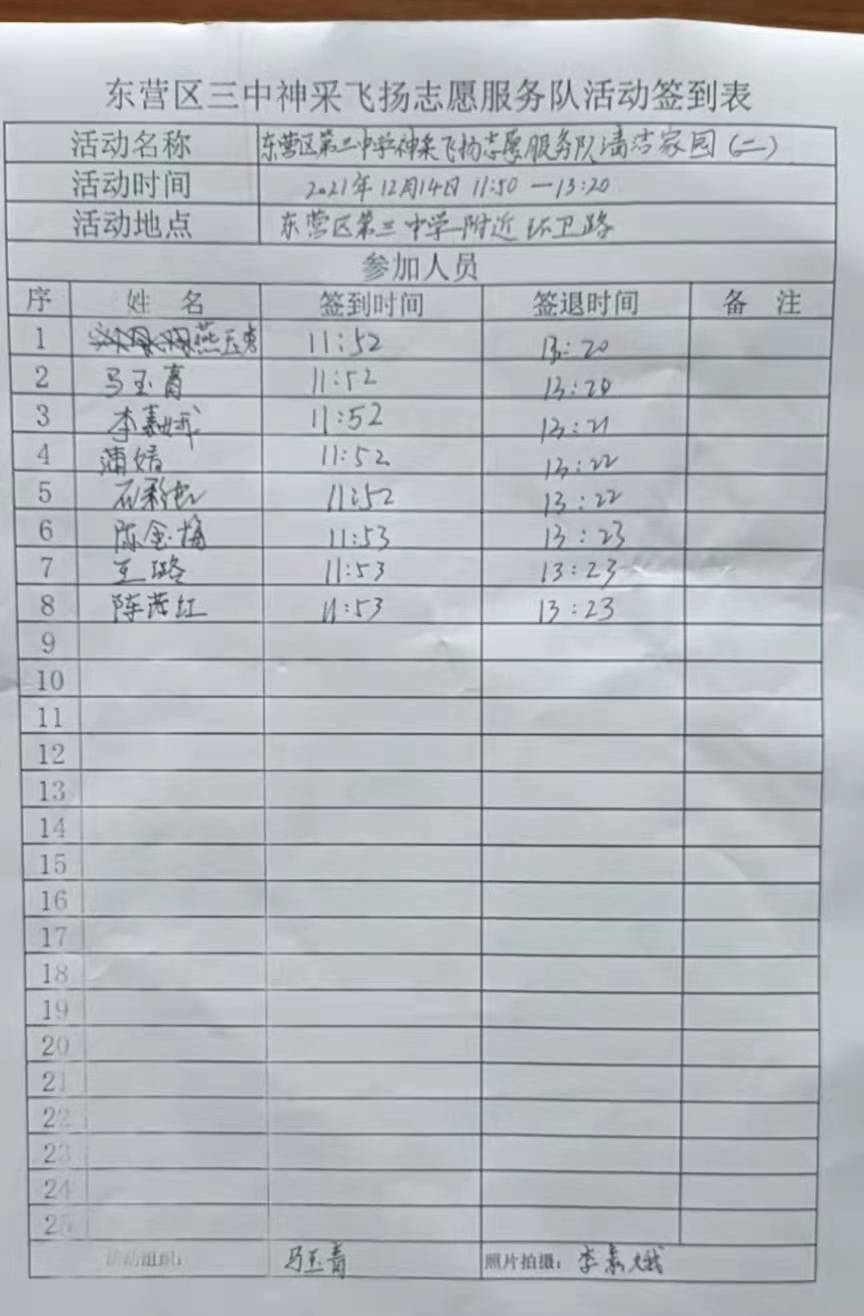 东营区三中神采飞扬志愿服务队活动签到表
活动名称 东营区第三中学神采飞扬志愿服务队清洁家园(二)
活动时间 2021年12月14日 11:50—13:20
活动地点 东营区第三中学附近环卫路
参加人员
序 姓 名 签到时间 签退时间 备 注
1 燕玉 11:52 13:20
2 马玉青 11:52 13:20
3 李嘉娥 11:52 13:21
4 蒲婧 11:52 13:22
5 石彩虹 11:52 13:22
6 陈金梅 11:53 13:23
7 王璐 11:53 13:23
8 陈红 11:53 13:23
9
10
11
12
13
14
15
16
17
18
19
20
21
22
23
24
25
活动组织: 马玉青 照片拍摄: 李嘉娥